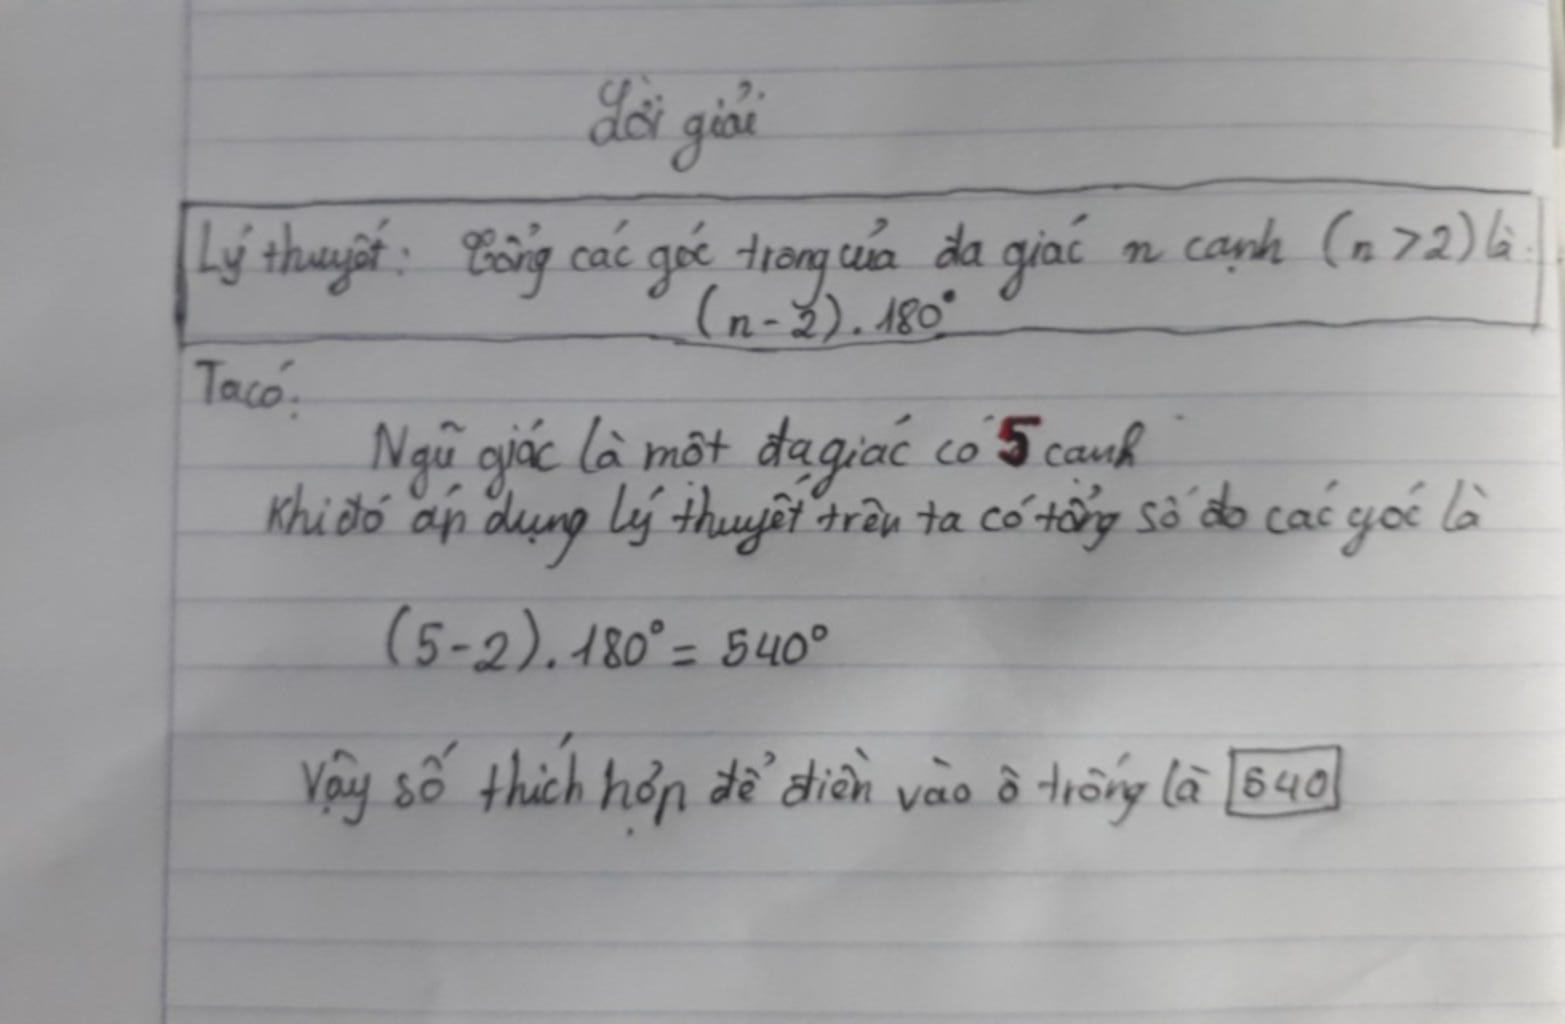 Lời giải
Lý thuyết: Tổng các góc trong của đa giác n cạnh (n > 2) là
(n - 2). 180°
Ta có:
Ngũ giác là một đa giác có 5 cạnh
Khi đó áp dụng lý thuyết trên ta có tổng số đo các góc là
(5 - 2). 180° = 540°
Vậy số thích hợp để điền vào ô trống là 540